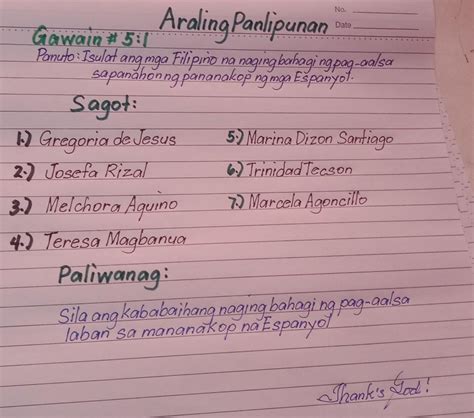 No.
Araling Panlipunan
Date
Gawain # 5:1
Panuto: Isulat ang mga Filipino na naging bahagi ng pag-aalsa
sa panahon ng pananakop ng mga Espanyol.
Sagot:
1.) Gregoria de Jesus
2.) Josefa Rizal
3.) Melchora Aquino
4.) Teresa Magbanua
5.) Marina Dizon Santiago
6.) Trinidad Tecson
7.) Marcela Agoncillo
Paliwanag:
Sila ang kababaihang naging bahagi ng pag-aalsa
laban sa mananakop na Espanyol
Thank's God!